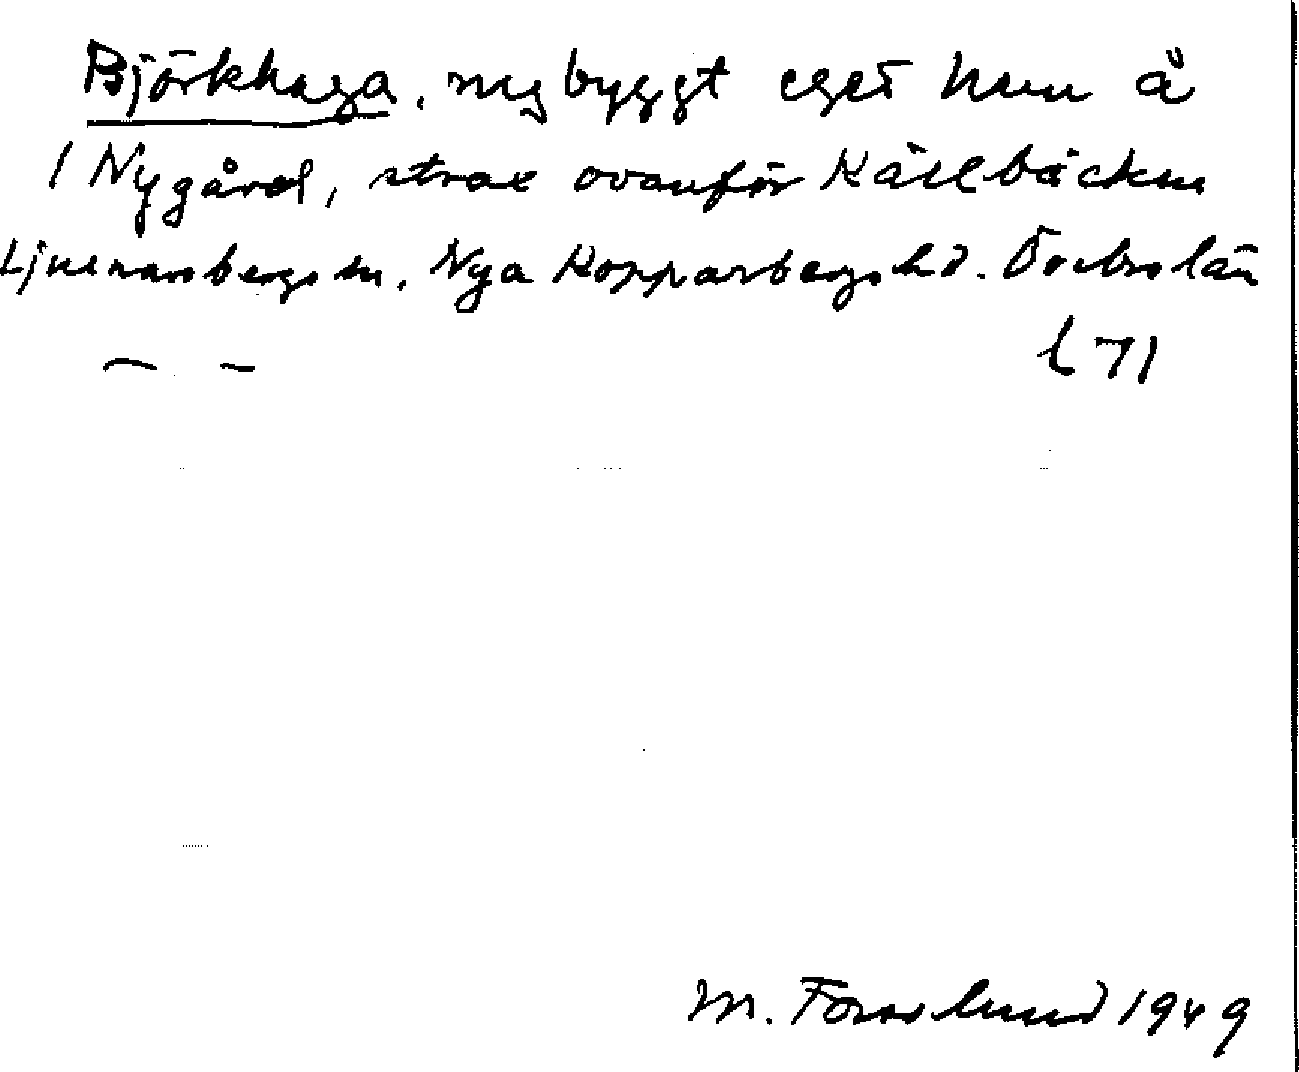 Björkhaga, nybyggt eget hem å
1 Nygård, strax ovanför Källbäcken
Ljusnarsbergs sn, Nya Kopparbergs hd. Örebro län
— —
l 71
M. Forslund 1949